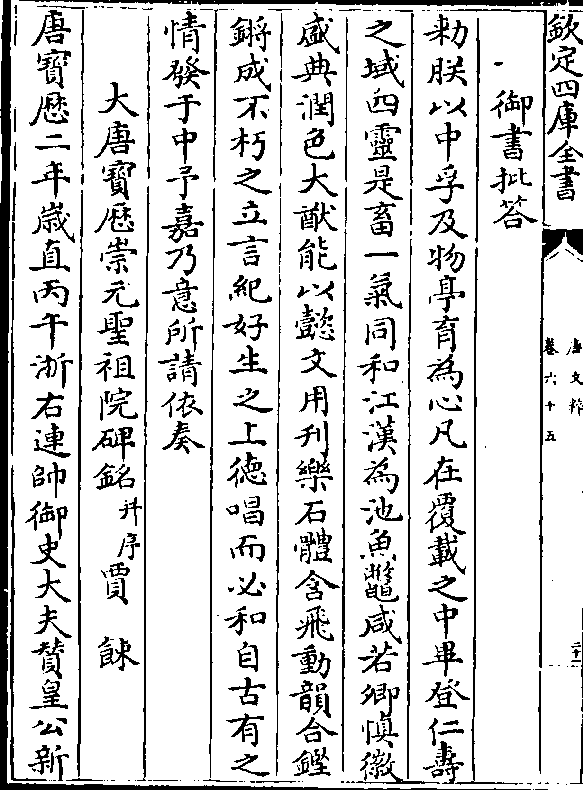 欽定四庫全書
唐文粹
卷六十五
御書批答
勅朕以中孚及物亭育為心凡在覆載之中畢登仁壽
之域四靈是畜一氣同和江漢為池魚鼈咸若卿慎徽
盛典潤色大猷能以懿文用刋樂石體含飛動韻合鏗
鏘成不朽之立言紀好生之上德唱而必和自古有之
情發于中予嘉乃意所請依奏
大唐寳厯崇元聖祖院碑銘并序 賈餗
唐寳厯二年歲直丙午浙右連帥御史大夫贊皇公新